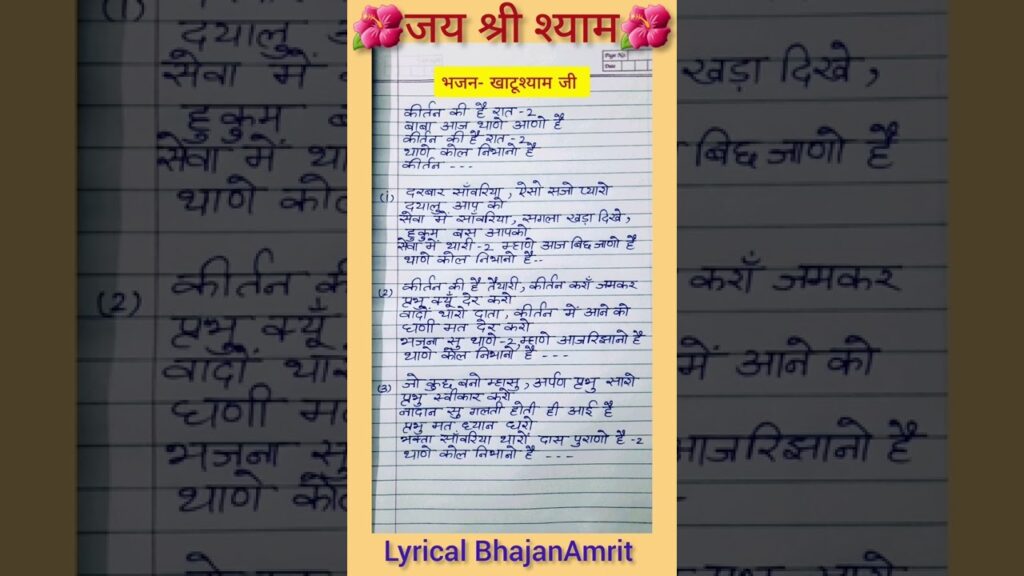 जय श्री श्याम
Page No.
Date
भजन- खाटूश्याम जी
कीर्तन की है रात -2
बाबा आज थाणे आणो है
कीर्तन की है रात -2
थाणे कोल निभानो है
कीर्तन ---
(1) दरबार साँवरिया, ऐसो सजो प्यारो
दयालु आप को
सेवा में साँवरिया, सगला खड़ा दिखे,
हुकुम बस आपको
सेवा में थारी -2 म्हाणे आज बिछ जाणो है
थाणे कोल निभानो है--
(2) कीर्तन की है तैयारी, कीर्तन कराँ जमकर
प्रभु क्यूँ देर करो
वादों थारो दाता, कीर्तन मे आने को
घणी मत देर करो
भजना सु थाणे -2 म्हाणे आज रिझानो है
थाणे कोल निभानो है ---
(3) जो कुछ बनो म्हासु, अर्पण प्रभु सारो
प्रभु स्वीकार करो
नादान सु गलती होती ही आई है
प्रभु मत ध्यान धरो
भक्ता साँवरिया थारो दास पुराणो है -2
थाणे कोल निभानो है ---
Lyrical BhajanAmrit